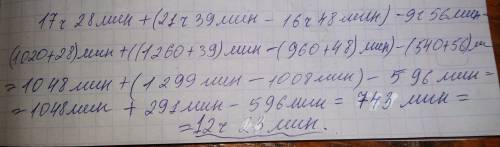 17ч 28мин + (21ч 39мин - 16ч 48мин) - 9ч 56мин -
(1020+28)мин + ((1260+39)мин - (960+48)мин) - (540+56)м
= 1048мин + (1299мин - 1008мин) - 596мин =
= 1048мин + 291мин - 596мин = 743мин =
= 12ч 23мин.